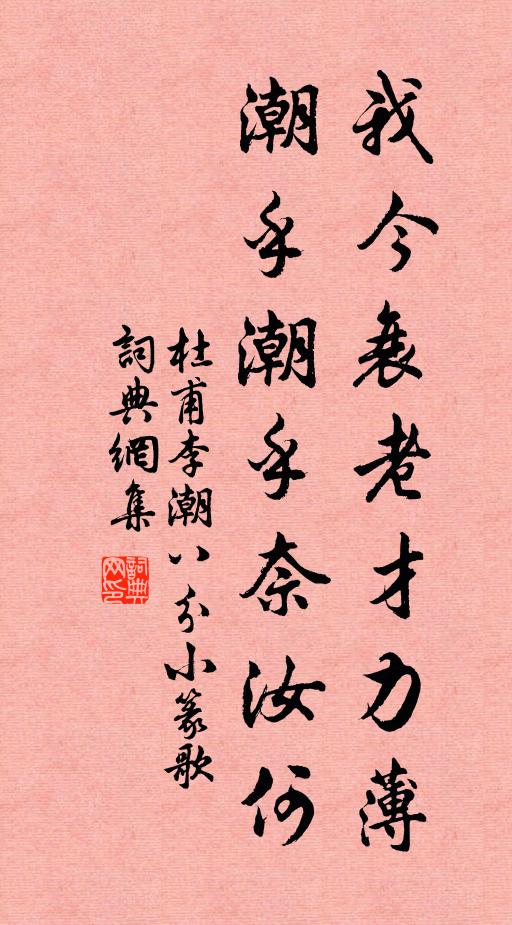 我今衰老才力薄
潮乎潮乎奈汝何
杜甫李潮八分小篆歌
詞典網集
詞典网印